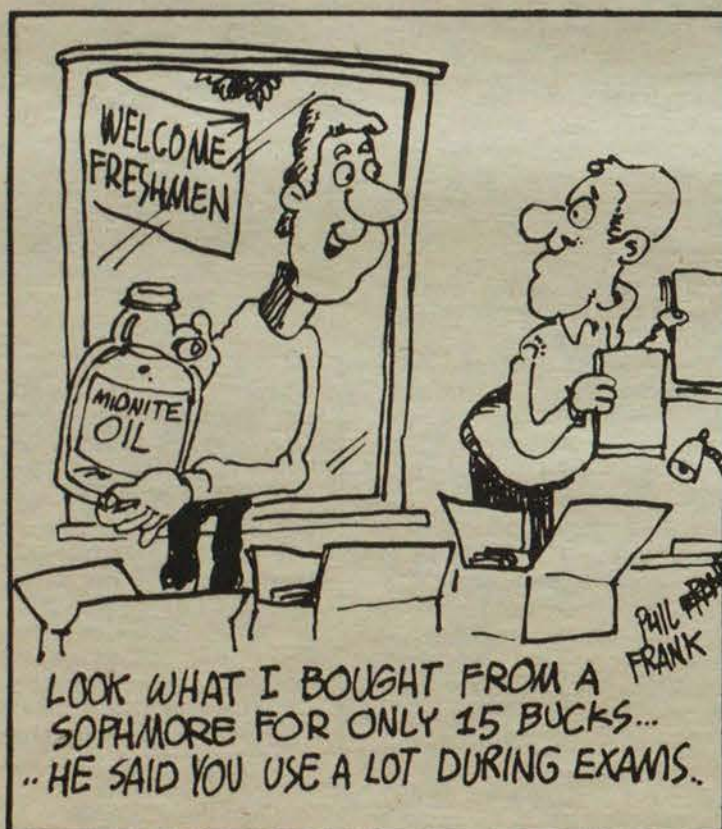 WELCOME
FRESHMEN
MIDNITE
OIL
PHIL
FRANK
LOOK WHAT I BOUGHT FROM A
SOPHMORE FOR ONLY 15 BUCKS...
..HE SAID YOU USE A LOT DURING EXAMS..